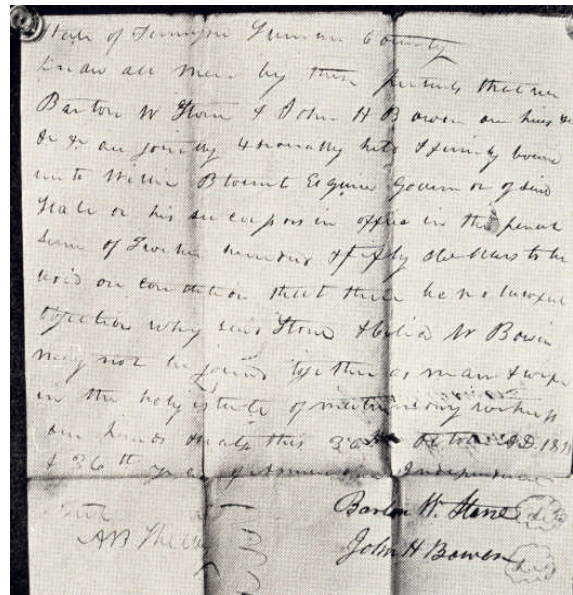 State of Tennessee Sumner County
Know all men by these presents that we
Barton W Stone & John H Bowen our heirs &
&c are jointly & severally held & firmly bound
unto Willie Blount Esquire Governor of said
State or his successors in office in the penal
sum of Twelve hundred & fifty dollars to be
void on condition that there be no lawful
objection why said Stone & Celia W Bowen
may not be joined together as man & wife
in the holy estate of matrimony witness
our hands & seals this Octo AD. 1811
& 36th year of American Independence
Barton W. Stone
John H Bowen